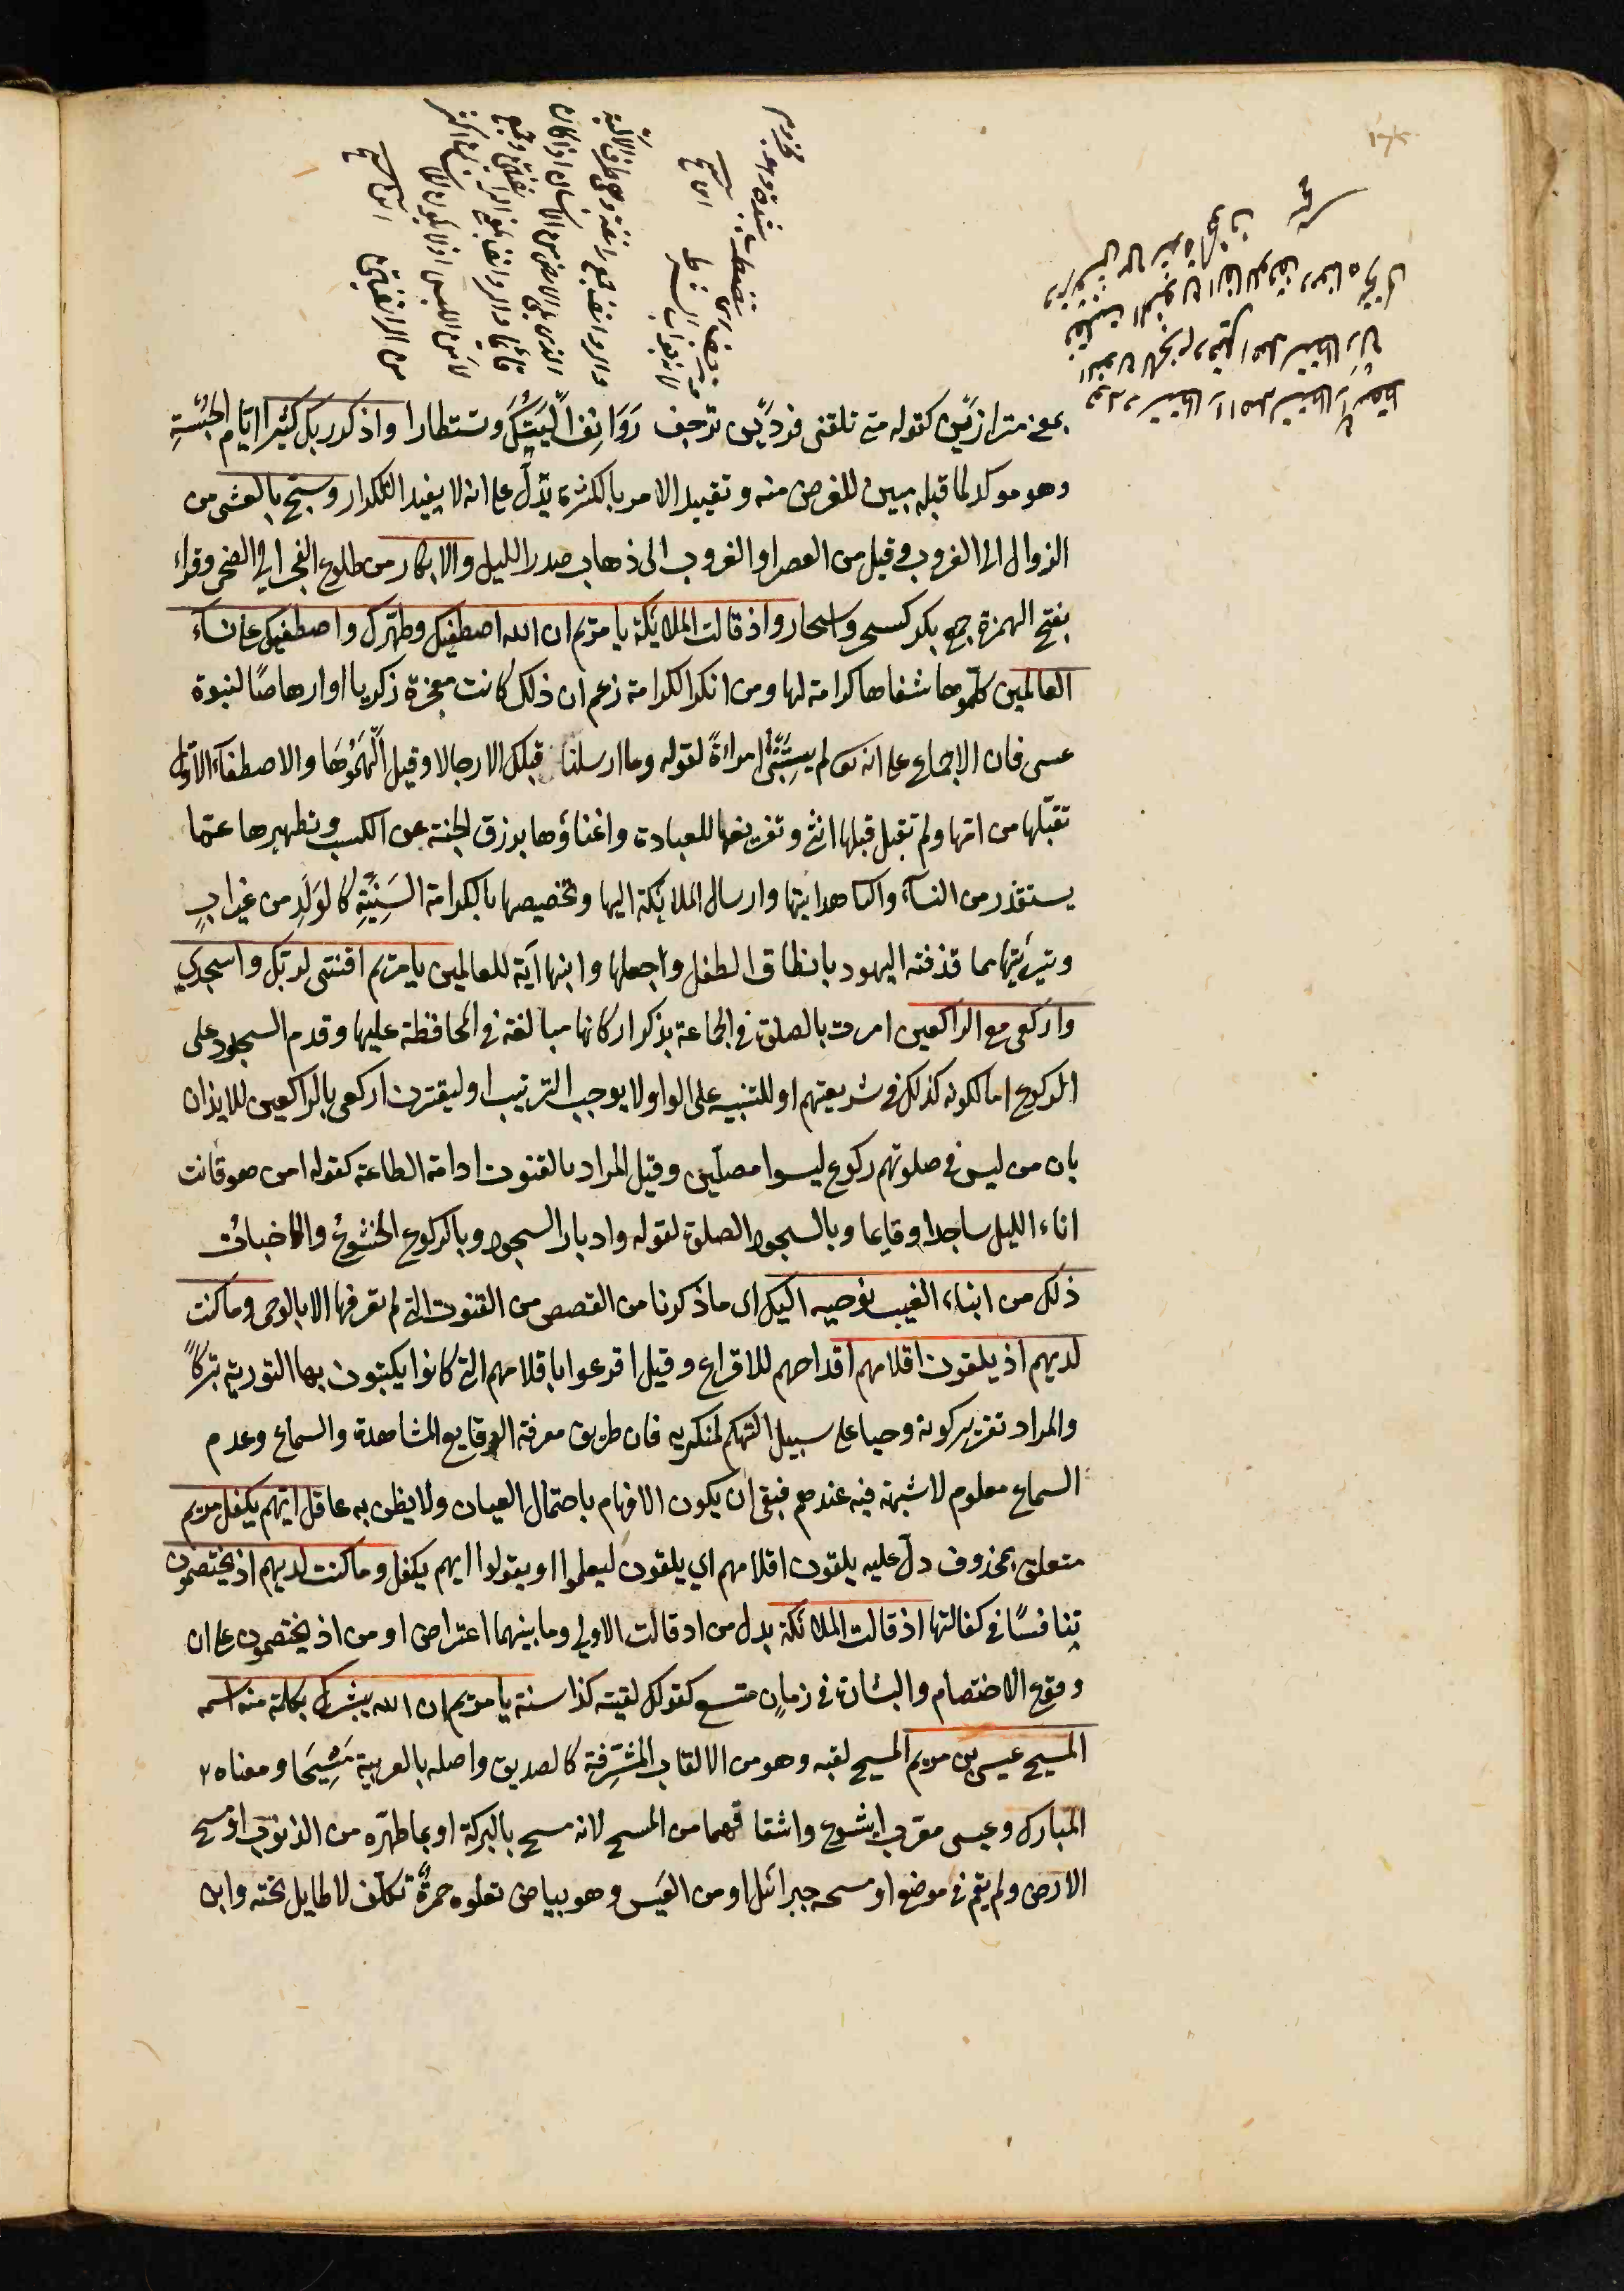 بمعنى مترامزين كقوله متى تلقنى فردين ترجف رَوَانِفُ اَلْيَتَيْكَ وتستطارا واذكر ربك كثيرا ايام الحُبْسَةِ
وهو موكد لما قبله مبين للغرض منه وتقييد الامر بالكثرة يدلّ على انه لا يفيد التكرار وسبح بالعشى من
الزوال الى الغروب وقيل من العصر او الغروب الى ذهاب صدر الليل والابكار من طلوع الفجر الى الضحى وقراء
بفتح الهمزة جمع بكر كسحر واسحار واذ قالت الملائكة يا مريم ان الله اصطفيك وطهّرك واصطفيك على نساء
العالمين كلّموها شفاها كرامة لها ومن انكر الكرامة زعم ان ذلك كانت معجزة زكريا او ارهاصًا لنبوة
عسى فان الاجماع على انه تعالى لم يستنبئ امراةً لقوله وما ارسلنا قبلك الا رجالا وقيل اَلْهَمُوْهَا والاصطفاء الاول
تقبّلها من امّها ولم تقبل قبلها انثى وتفريغها للعبادة واغناؤها برزق الجنة عن الكسب وتطهيرها عمّا
يستقذر من النساء والثا هدايتها وارسال الملائكة اليها وتخصيصها بالكرامة السَنِيَّةِ كالوَلَدِ من غير ابٍ
وتبرئتها مما قذفته اليهود بانطاق الطفل وجعلها وابنها آية للعالمين يا مريم اقنتى لربك واسجدي
واركعى مع الراكعين امرت بالصلوة في الجماعة بذكر اركانها مبالغة في المحافظة عليها وقدم السجود على
الركوع اما لكونه كذلك في شريعتهم او للتنبيه على الواو لا يوجب الترتيب او ليقترن اركعى بالراكعين للايذان
بان من ليس في صلوتهم ركوع ليسوا مصلّين وقيل المراد بالقنوت ادامة الطاعة كقوله امن هو قانت
اناء الليل ساجدا وقايما وبالسجود الصلوة لقوله وادبار السجود وبالركوع الخشوع والاخبات
ذلك من انباء الغيب نوحيه اليك اى ما ذكرنا من القصص من القنوت التى لم تعرفها الا بالوحى وما كنت
لديهم اذ يلقون اقلامهم اقداحهم للاقراع وقيل اقرعوا باقلامهم التى كانوا يكتبون بها التورية تبركًا
والمراد تقرير كونه وحيا على سبيل التهكم لمنكريه فان طريق معرفة الوقايع المشاهدة والسماع وعدم
السماع معلوم لا شبهة فيه عندهم فبقى ان يكون الافهام باحتمال العيان ولا يظن به عاقل ايّهم يكفل مريم
متعلق بمحذوف دلّ عليه يلقون اقلامهم اي يلقون ليعلموا او يقولوا ايهم يكفل وما كنت لديهم اذ يختصمون
تنافسًا في كفالتها اذ قالت الملائكة بدل من اذ قالت الاولى وما بينهما اعتراض او من اذ يختصمون على ان
وقوع الاختصام والبشارة في زمانٍ متسع كقولك لقيته كذا سنة يا مريم ان الله يبشرك بكلمة منه اسمه
المسيح عيسى بن مريم المسيح لقبه وهو من الالقاب المُشَرِّفة كالصديق واصله بالعربية مَشِيَحا ومعناه
المبارك وعيسى معرب ايشوع واشتقاقهما من المسح لانه مسح بالبركة او بما طهّره من الذنوب او مسح
الارض ولم يقم في موضع او مسحه جبرائيل او من العَيس وهو بياض تعلوه حمرةٌ تكلّف لا طايل تحته وابن